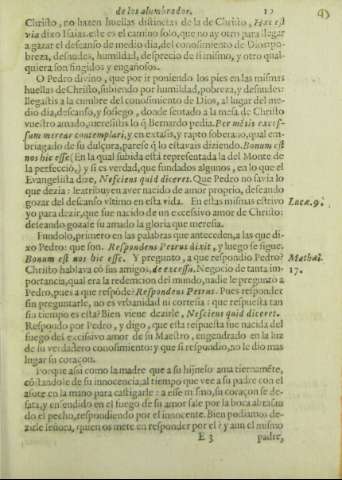 de los alumbrados. 19
Christo, no hazen huellas distinctas de la de Christo, Hæc est
via dixo Isaias. este es el camino solo, que no ay otro para llegar
a gozar el descanso de medio dia, del conosimiento de Dios: po-
breza, desnudes, humildad, desprecio de si mismo, y otro qual-
quiera son fingidos y engañosos.
O Pedro divino, que por ir poniendo los pies en las mismas
huellas de Christo, subiendo por humildad, pobreza, y desnudes:
llegastis a la cumbre del conosimiento de Dios, al lugar del me-
dio dia, descanso, y sosiego, donde sentado a la mesa de Christo
vuestro amado, meresistis lo q̃ Bernardo pedia. Per mẽtis exces-
sum merear contemplari, y en extasis, y rapto soberano, qual em-
briagado de su dulçura, parese q̃ lo estavais diziendo. Bonum est
nos hic esse (En la qual subida está representada la del Monte de
la perfecciõ,) y si es verdad, que fundados algunos, en lo que el
Evangelista dize, Nesciens quid diceret. Que Pedro no savia lo
que dezia: le atribuyen aver nacido de amor proprio, deseando
gozar del descanso vltimo en esta vida. En ellas mismas estrivo
yo para dezir, que fue nacido de un excessivo amor de Christo:
deseando gozase su amado la gloria que meresia.
Luc. 9.
Fundolo, primero en las palabras que anteceden, a las que di-
xo Pedro: que son. Respondens Petrus dixit, y luego se sigue.
Bonum est nos hic esse. Y pregunto, a que respondio Pedro?
Mathæi.
Christo hablava cõ sus amigos, de excessu. Negocio de tanta im-
17.
portancia, qual era la redempcion del mundo, nadie le pregunto a
Pedro, pues a que respõde? Respondens Petrus. Pues responder
sin preguntarle, no es vrbanidad ni cortesia: que respuesta tan
sin tiempo es esta? Bien viene dezirle, Nesciens quid diceret.
Respondo por Pedro, y digo, que esta respuesta fue nacida del
fuego del excesivo amor de su Maestro, engendrado en la luz
de su verdadero conosimiento: y que si respondio, no le dio mas
lugar su coraçon.
Porque asi como la madre que a su hijuelo ama tiernamẽte,
cõstandole de su innocencia, al tiempo que vee a su padre con el
asote en la mano para castigarle: a esse mismo, su coraçon se de-
sata, y ensendido en el fuego de su amor sale por la boca abrasan-
do el pecho, respondiendo por el innocente. Bien podiamos de-
zirle señora, quien os mete en responder por el? y aun el mismo
E 3 padre,